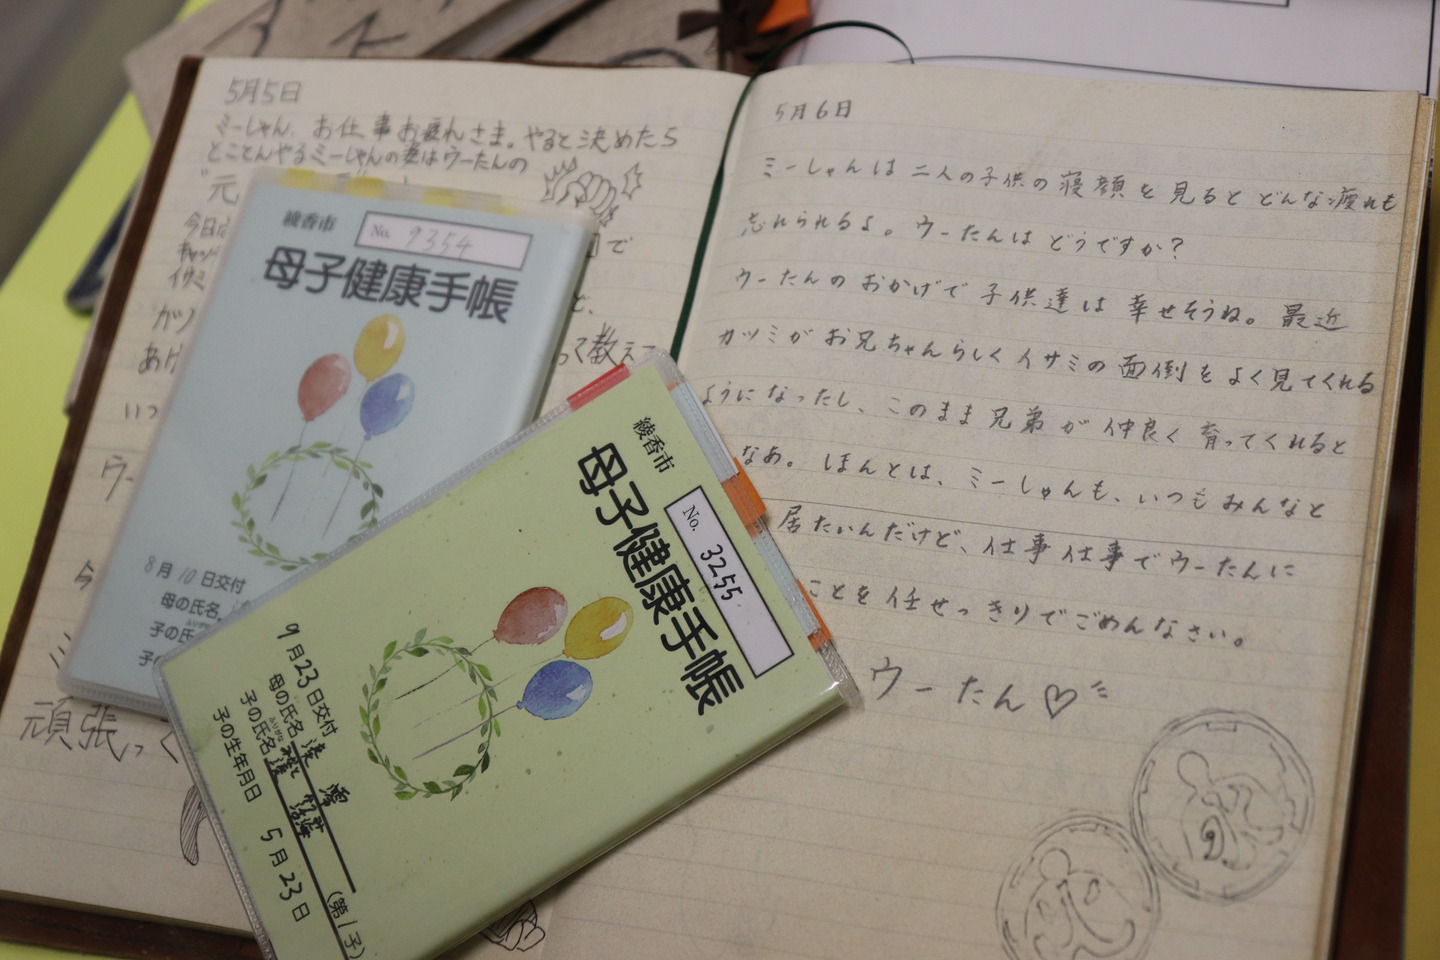 5月5日
ミーしゃん、お仕事お疲れさま。やると決めたら
とことんやるミーしゃんの妻はウーたんの
"元
今日は
で
キャッ
イサミ
ガッ
と、
あけ
って教えて
いつ
ウー
今
ミ
頑張って
5月6日
ミーしゃんは二人の子供の寝顔を見るとどんな疲れも
忘れられるよ。ウーたんはどうですか?
ウーたんのおかげで子供達は幸せそうね。最近
カツミがお兄ちゃんらしくイサミの面倒をよく見てくれる
ようになったし、このまま兄弟が仲良く育ってくれると
なあ。ほんとは、ミーしゃんも、いつもみんなと
居たいんだけど、仕事仕事でウーたんに
ことを任せっきりでごめんなさい。
ウーたん♡
綾香市
No. 9354
母子健康手帳
8月10日交付
母の氏名
子の氏
子の
綾香市
No. 3255
母子健康手帳
9月23日交付
母の氏名 湊 澪
ふりがな
子の氏名 湊
子の生年月日 5月23日
(第1子)